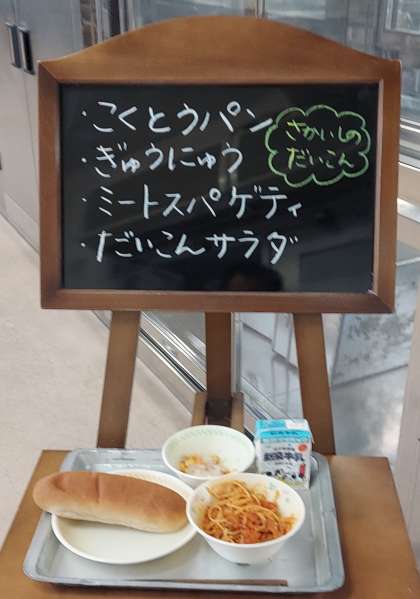 ・こくとうパン
・ぎゅうにゅう
・ミートスパゲティ
・だいこんサラダ
さかいしの
だいこん